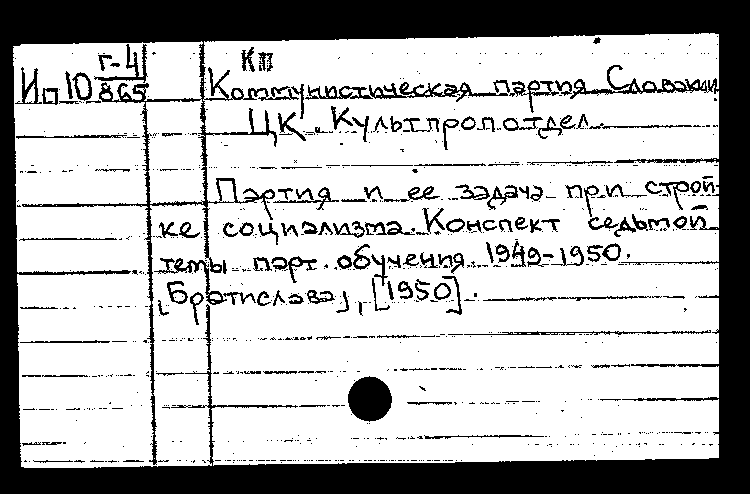 Кп
Ип10 г-4/865 Коммунистическая партия Словакии
ЦК. Культпропотдел.
Партия и ее задача при строй-
ке социализма. Конспект седьмой
темы парт. обучения. 1949-1950.
[Братислава], [1950].